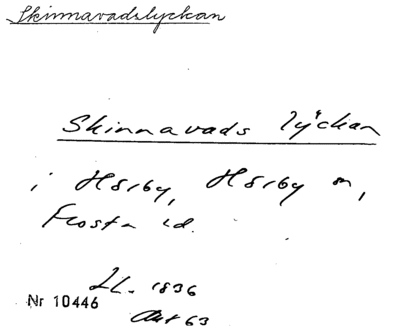 Skinnavadslyckan
Skinnavads lyckan
i Hörby, Hörby sn,
Frosta hd.
LL. 1836
Akt 63
Nr 10446